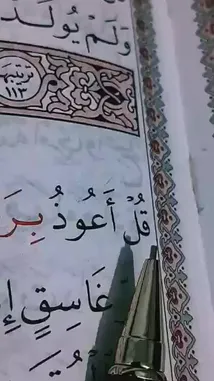 وَلَمْ يُولَدْ
تَرْتِيبُهَا
١١٣
قُلْ أَعُوذُ بِرَ
غَاسِقٍ إِ